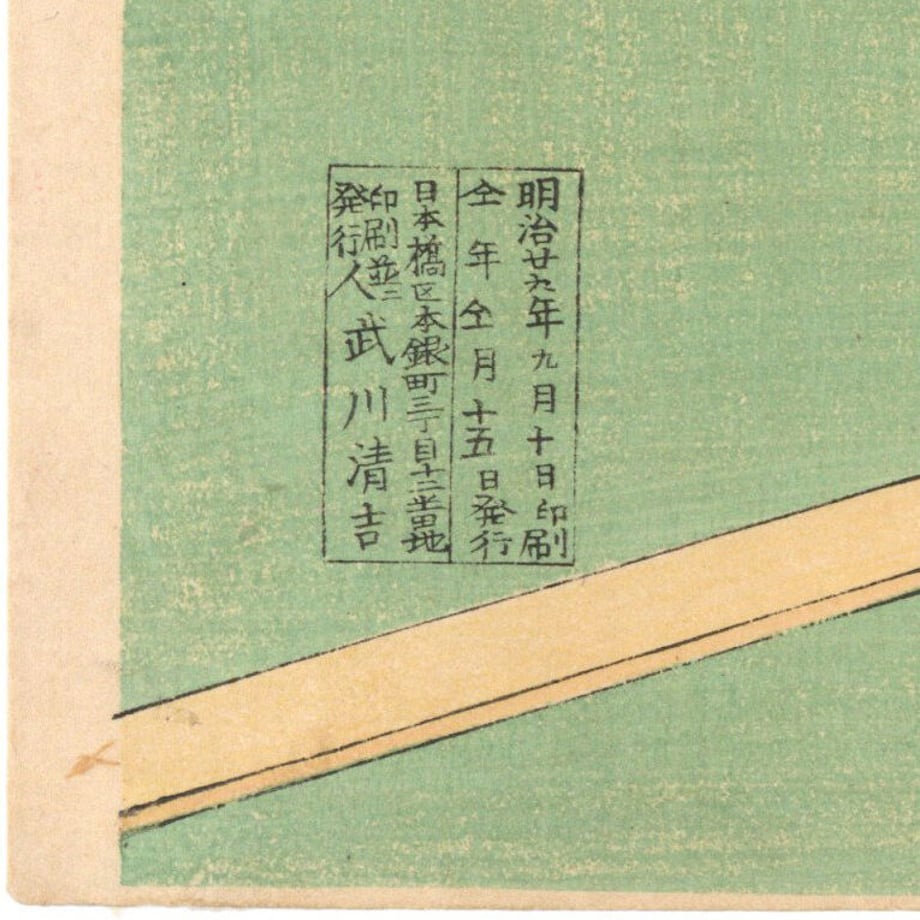 明治廿九年九月十日印刷
仝年仝月十五日発行
日本橋区本銀町三丁目十二番地
印刷並ニ
発行人 武川清吉